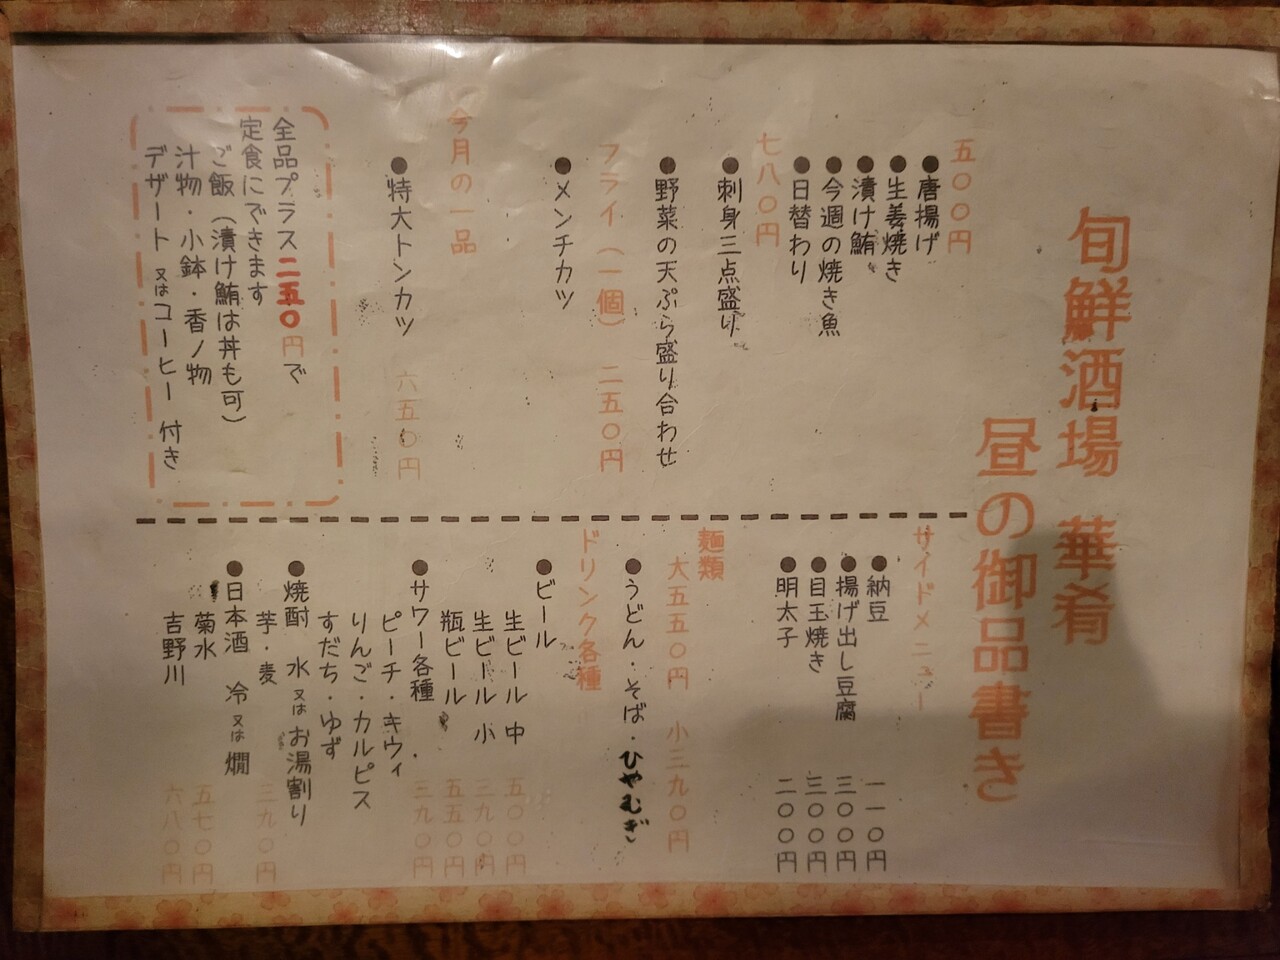 旬鮮酒場 華肴
昼の御品書き
五〇〇円
●唐揚げ
●生姜焼き
●漬け鮪
●今週の焼き魚
●日替わり
七八〇円
●刺身三点盛り
●野菜の天ぷら盛り合わせ
フライ(一個) 二五〇円
●メンチカツ
今月の一品
●特大トンカツ 六五〇円
全品プラス二五〇円で
定食にできます
ご飯(漬け鮪は丼も可)
汁物・小鉢・香ノ物
デザート又はコーヒー付き
サイドメニュー
●納豆 一一〇円
●揚げ出し豆腐 三〇〇円
●目玉焼き 三〇〇円
●明太子 二〇〇円
麺類
大五五〇円 小三九〇円
●うどん・そば・ひやむぎ
ドリンク各種
●ビール
生ビール 中 五〇〇円
生ビール 小 三九〇円
瓶ビール 五五〇円
●サワー各種 三九〇円
ピーチ・キウィ
りんご・カルピス
すだち・ゆず
●焼酎 水又はお湯割り
芋・麦 三九〇円
●日本酒 冷又は燗
菊水 五七〇円
吉野川 六八〇円